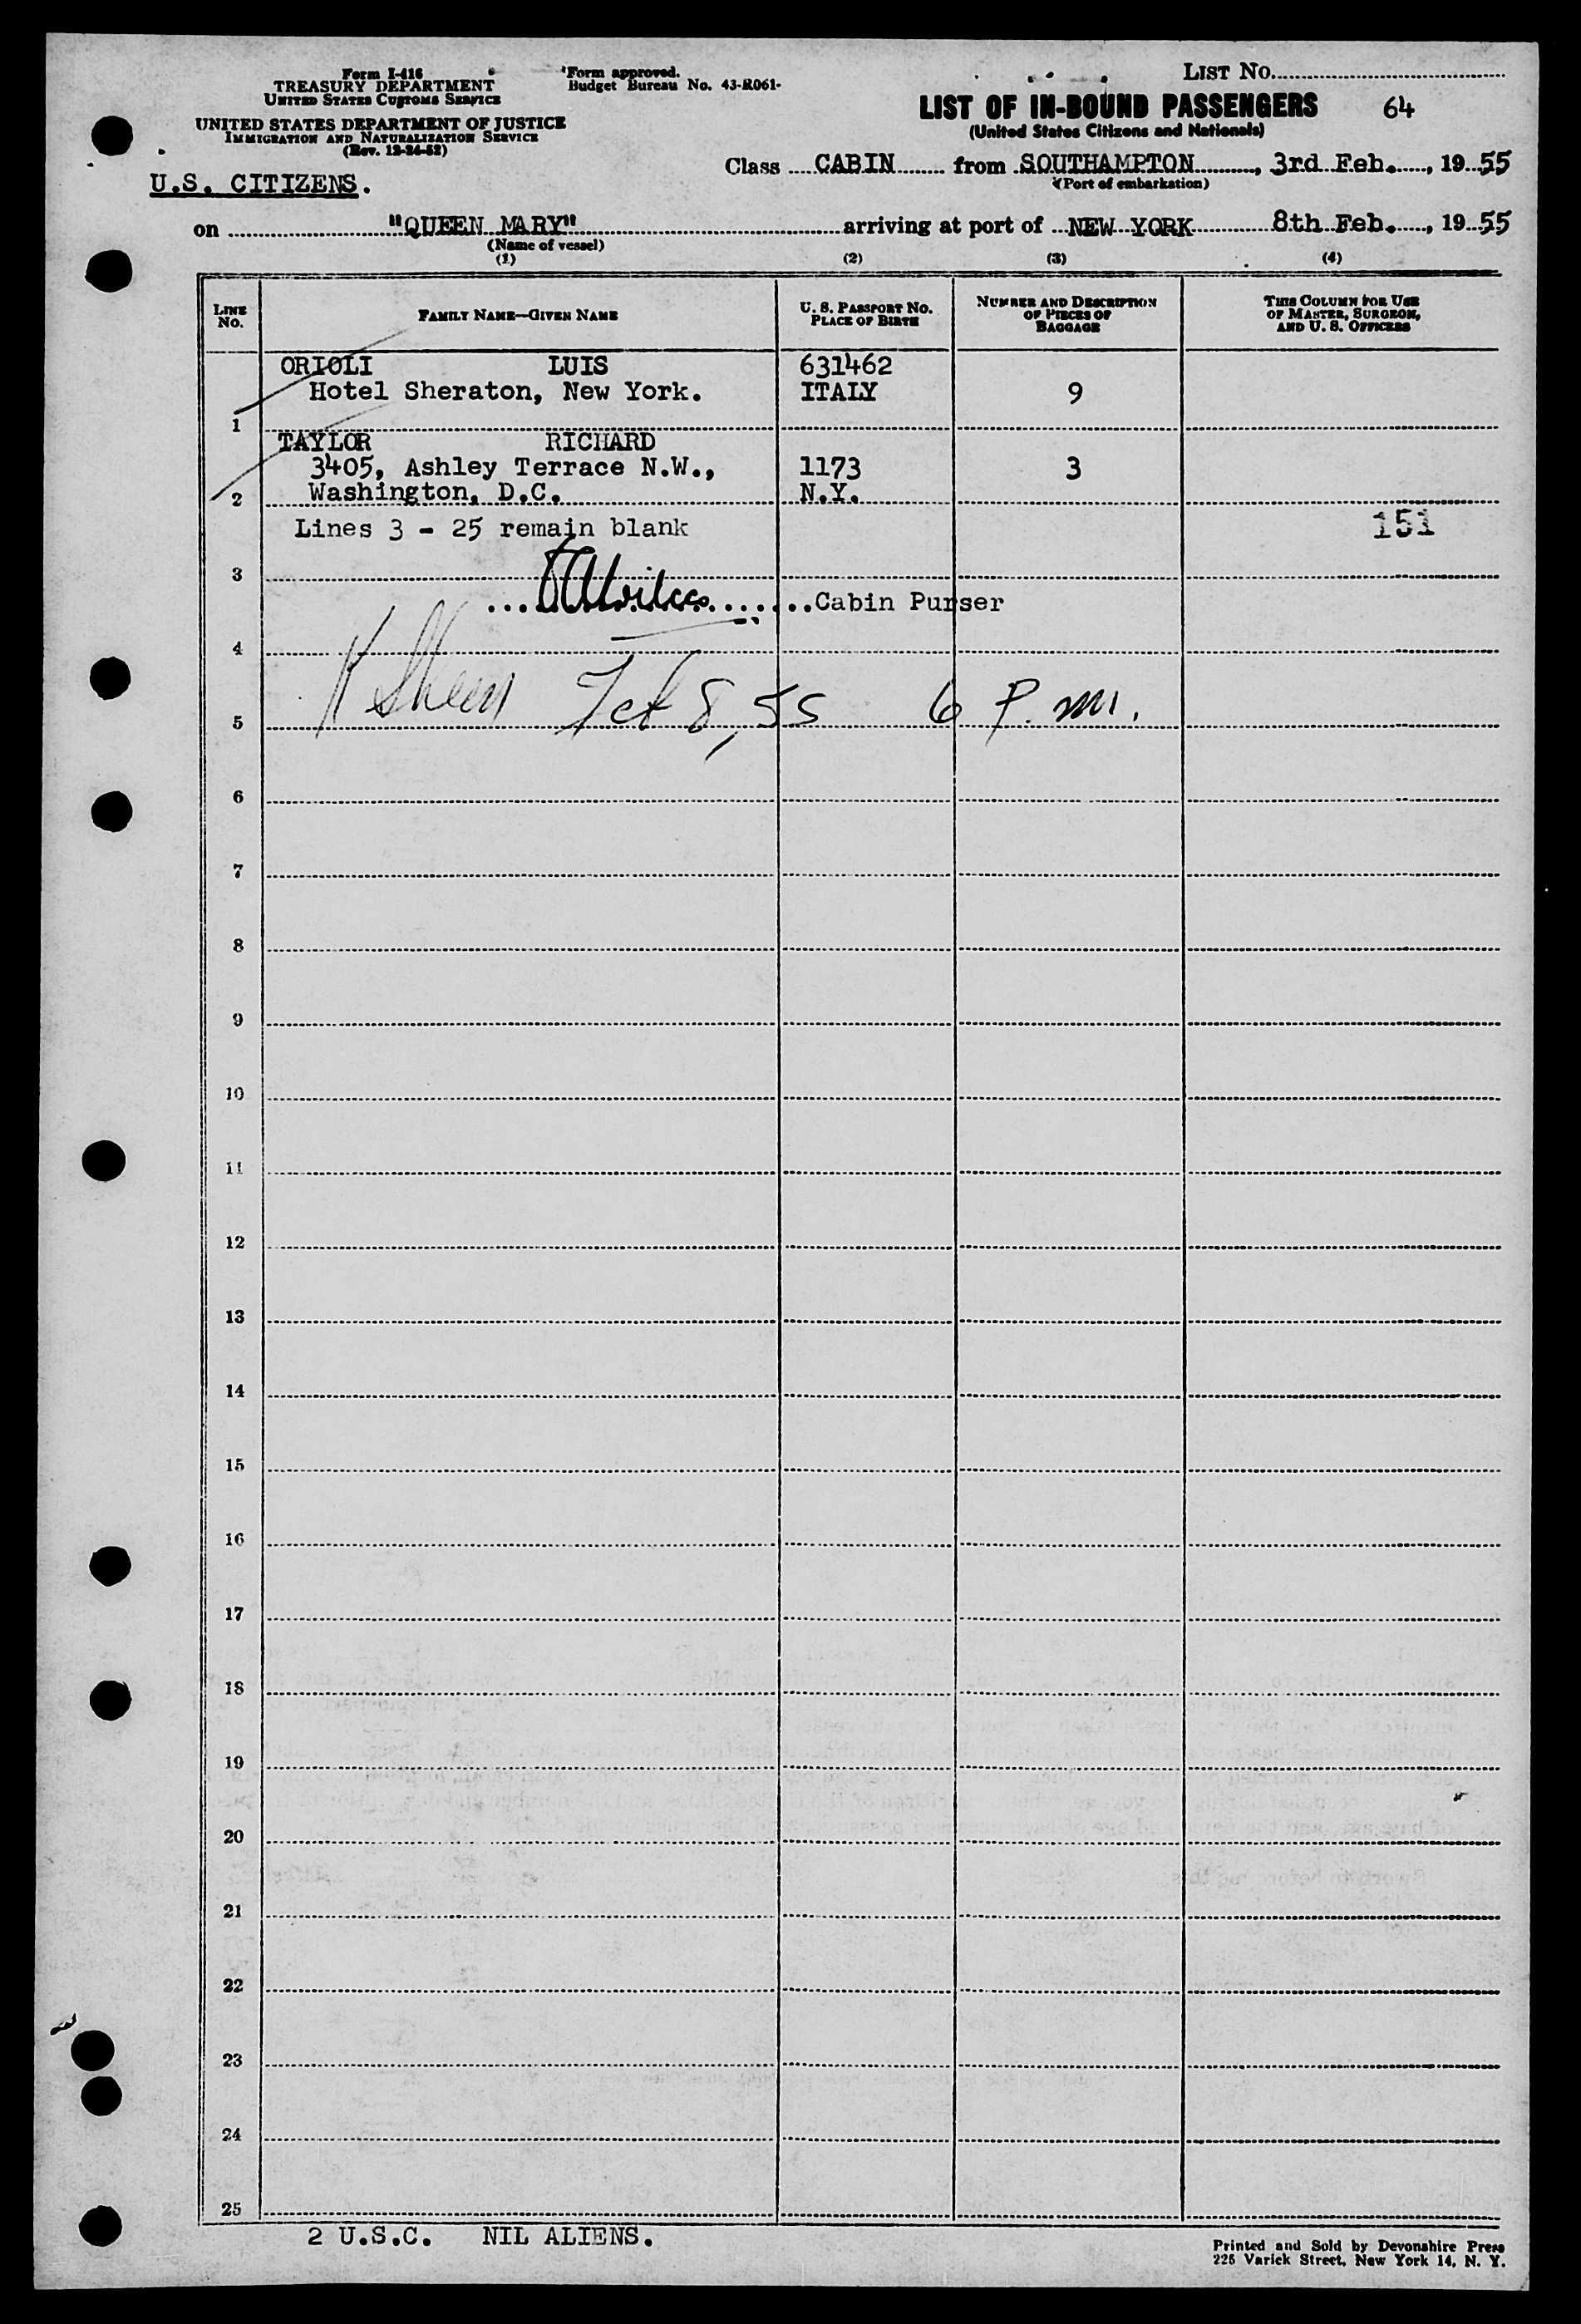 Form I-416
TREASURY DEPARTMENT
UNITED STATES CUSTOMS SERVICE
UNITED STATES DEPARTMENT OF JUSTICE
IMMIGRATION AND NATURALIZATION SERVICE
(Rev. 12-24-52)
Form approved.
Budget Bureau No. 43-R061-
LIST NO.
LIST OF IN-BOUND PASSENGERS 64
(United States Citizens and Nationals)
U.S. CITIZENS.
Class CABIN from SOUTHAMPTON, 3rd Feb., 1955
(Port of embarkation)
on "QUEEN MARY" arriving at port of NEW YORK 8th Feb., 1955
(Name of vessel)
(1) (2) (3) (4)
LINE NO. FAMILY NAME—GIVEN NAME U. S. PASSPORT NO. PLACE OF BIRTH NUMBER AND DESCRIPTION OF PIECES OF BAGGAGE THIS COLUMN FOR USE OF MASTER, SURGEON, AND U. S. OFFICERS
ORIOLI LUIS 631462
Hotel Sheraton, New York. ITALY 9
1
TAYLOR RICHARD
3405, Ashley Terrace N.W., 1173 3
2 Washington, D.C. N.Y.
Lines 3 - 25 remain blank 151
3
Cabin Purser
4
Feb 8, 55 6 P.m.
5
6
7
8
9
10
11
12
13
14
15
16
17
18
19
20
21
22
23
24
25
2 U.S.C. NIL ALIENS.
Printed and Sold by Devonshire Press
225 Varick Street, New York 14, N. Y.